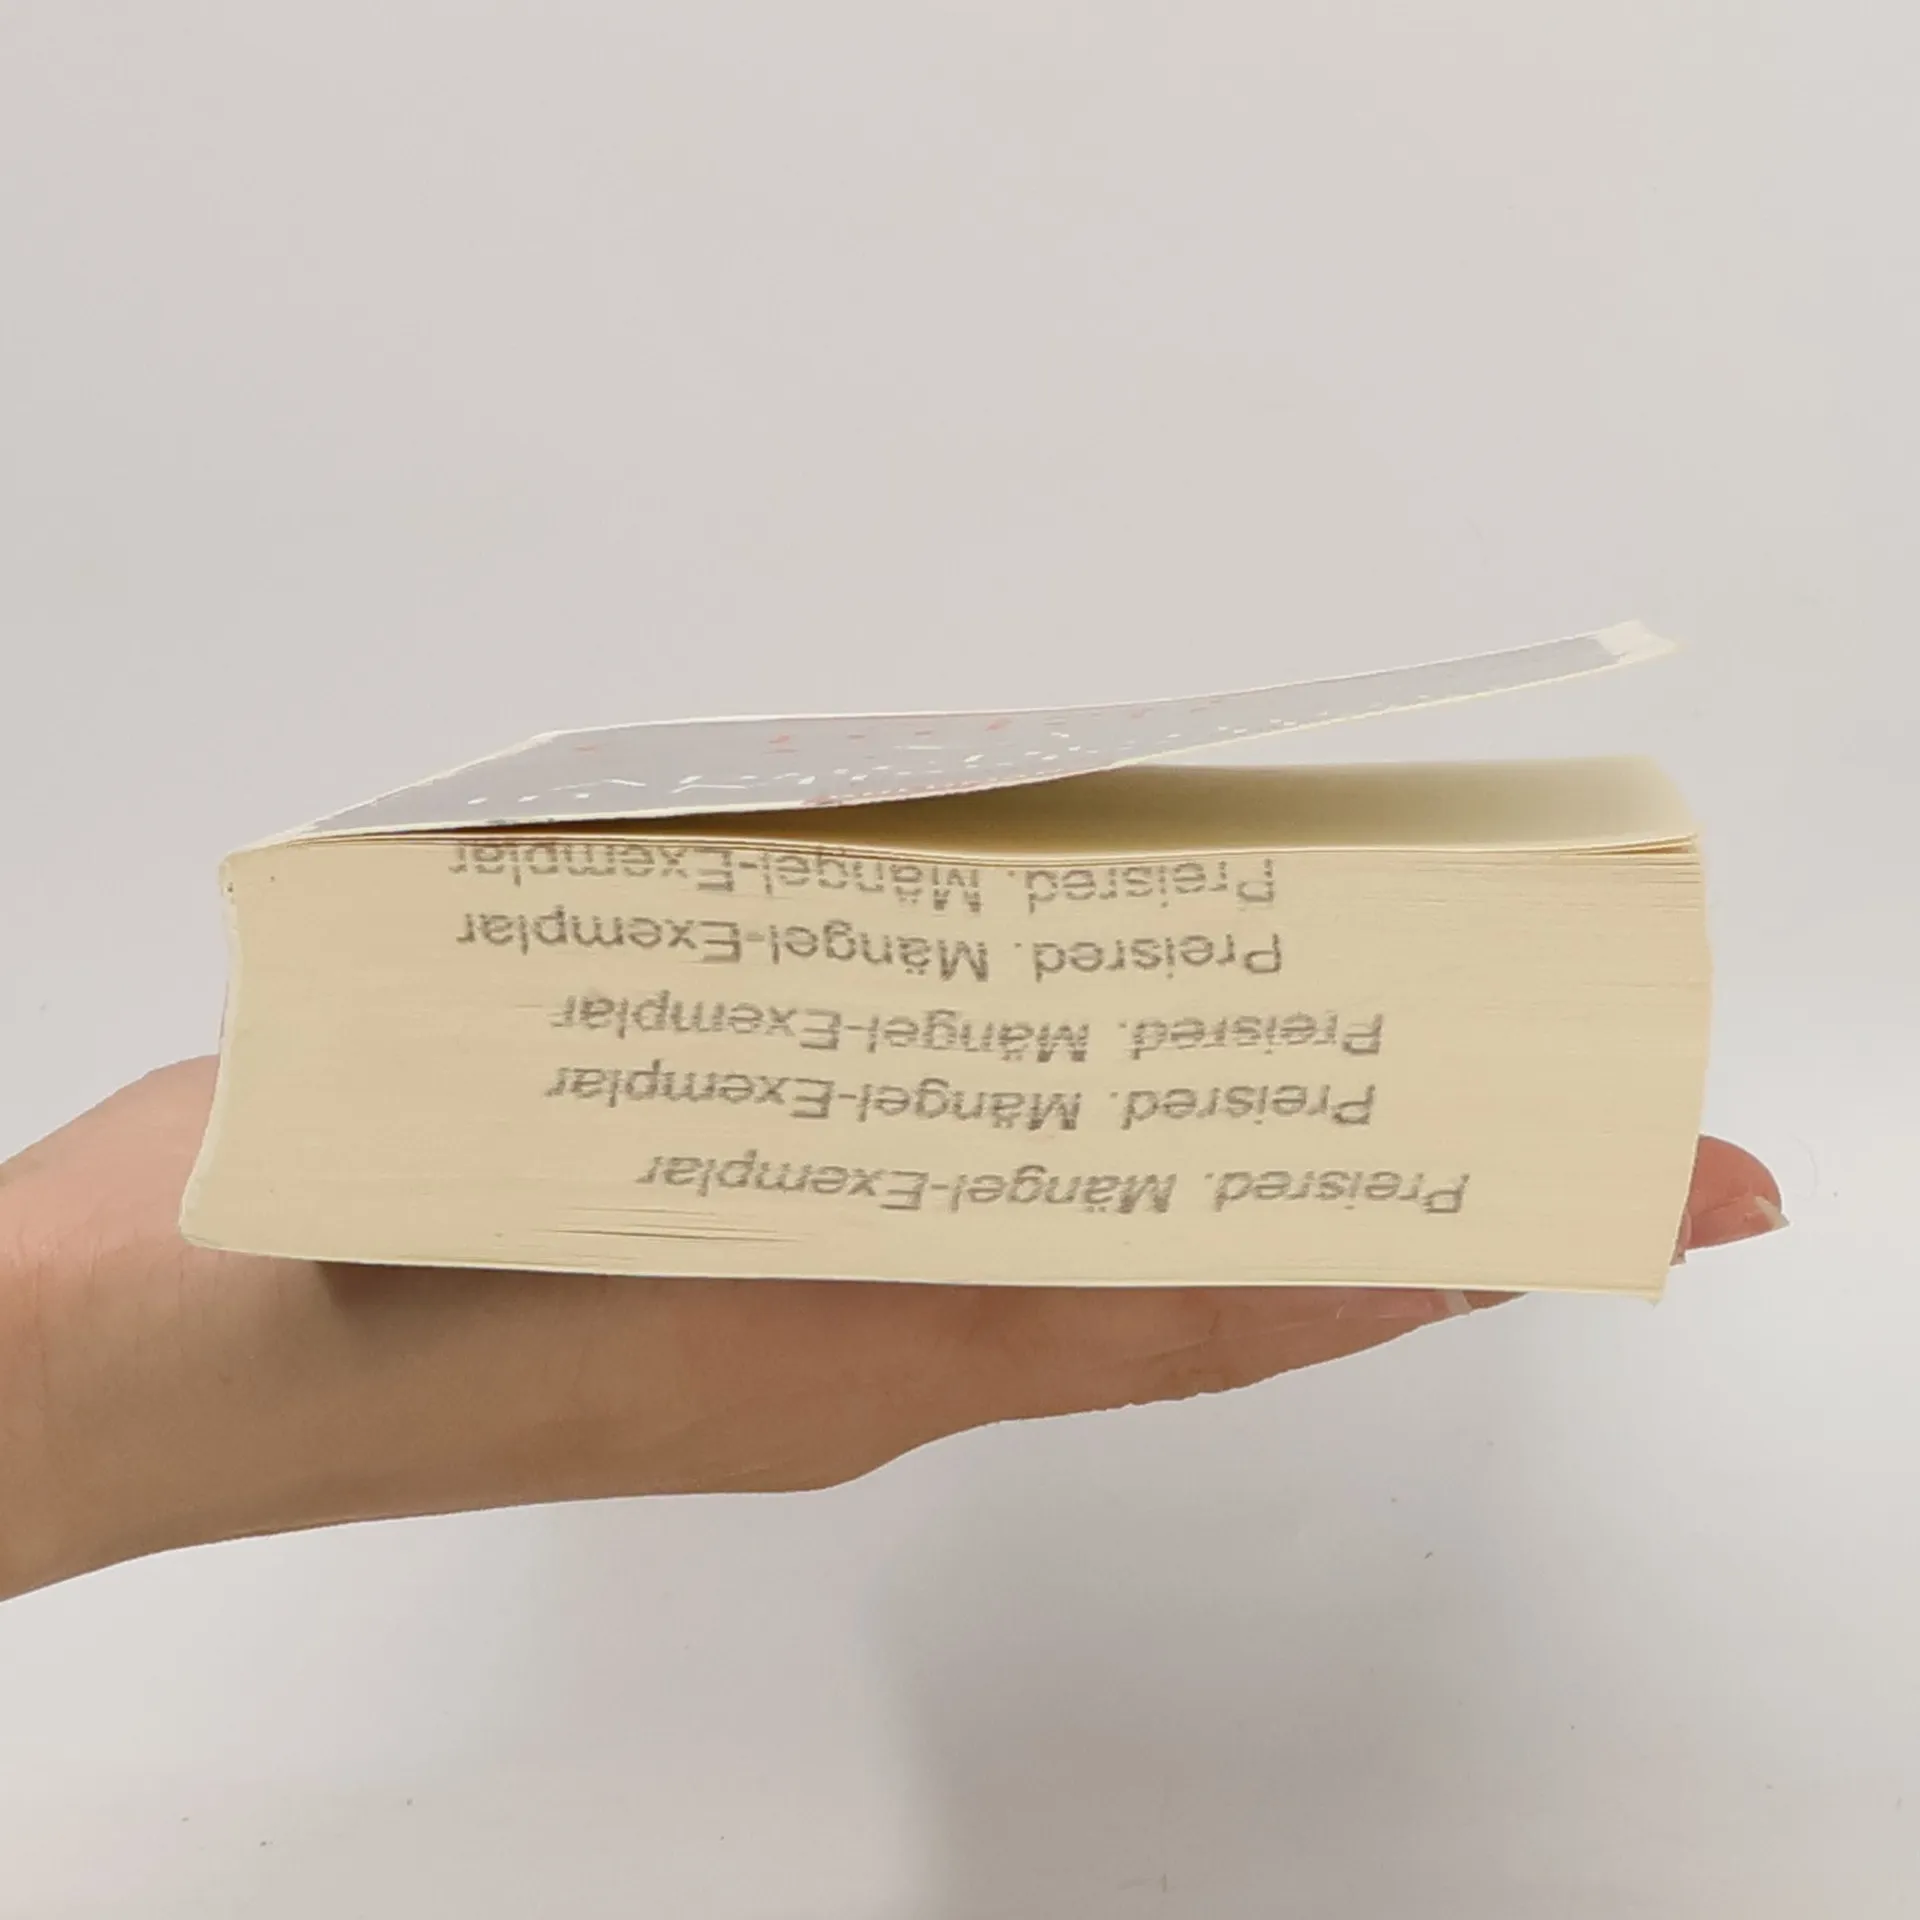 Preisred. Mängel-Exemplar
Preisred. Mängel-Exemplar
Preisred. Mängel-Exemplar
Preisred. Mängel-Exemplar
Preisred. Mängel-Exemplar